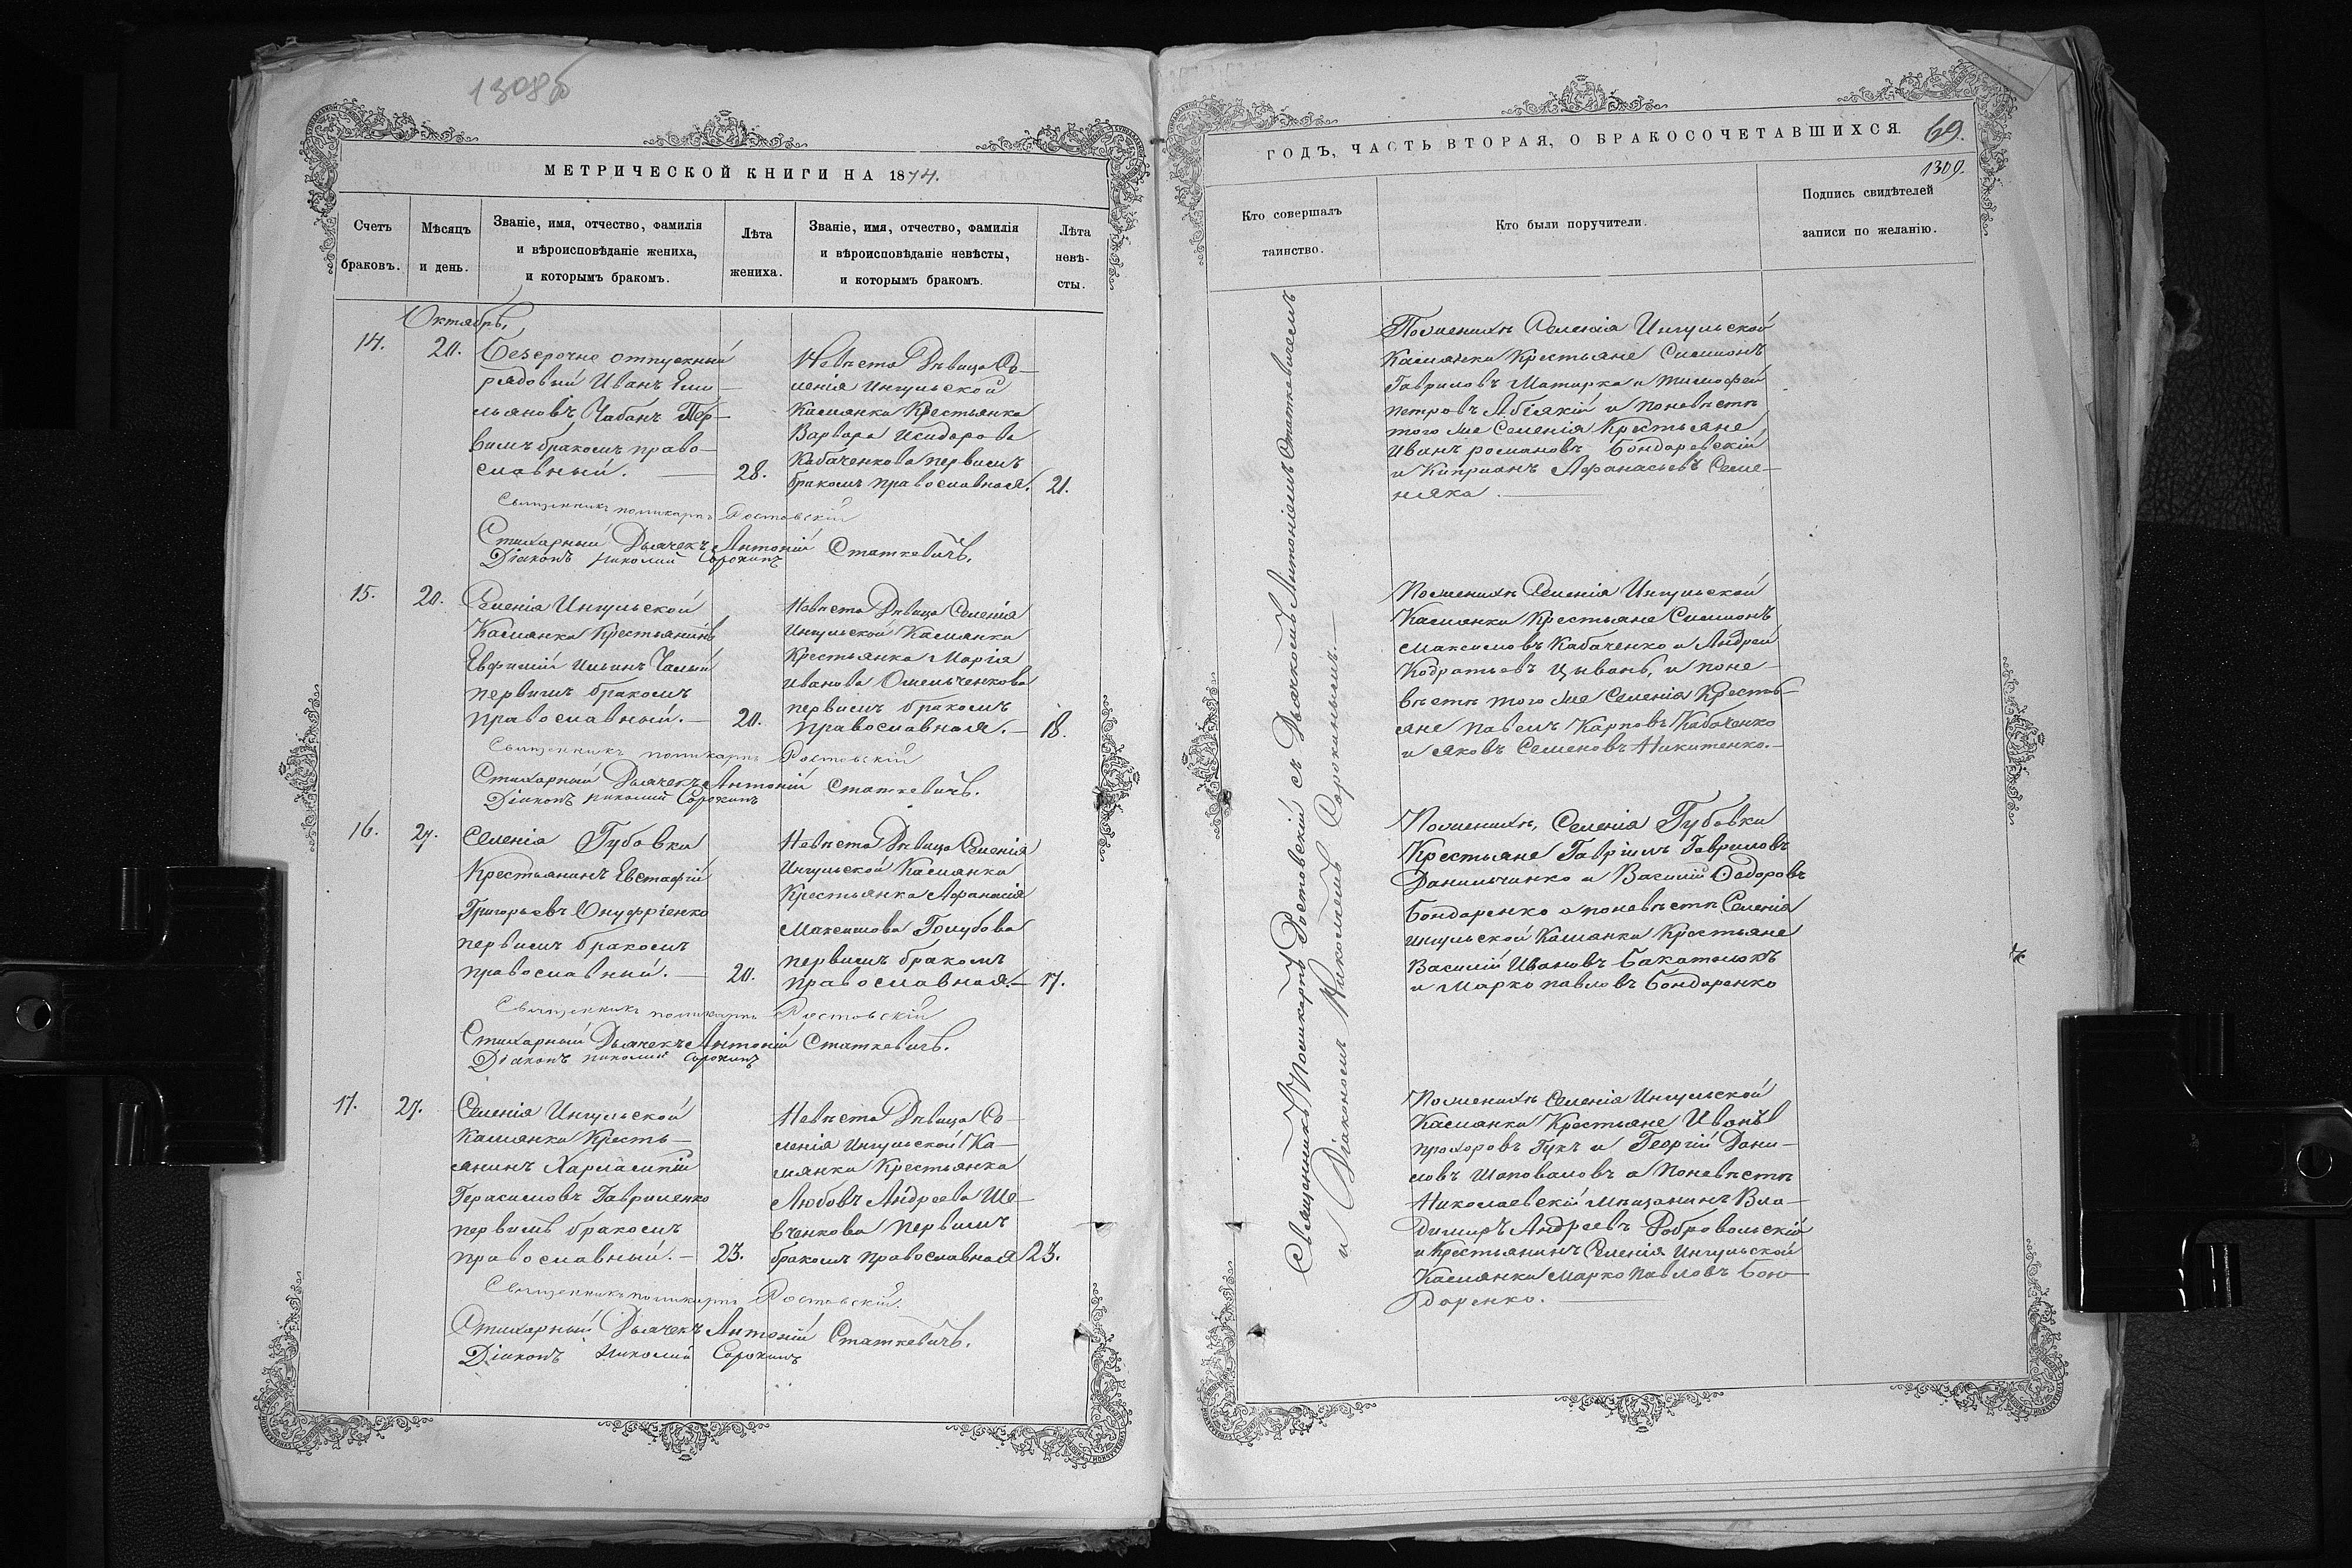 1308б
МЕТРИЧЕСКОЙ КНИГИ НА 1874.
Счетъ браковъ.
Мѣсяцъ и день.
Званіе, имя, отчество, фамилія
и вѣроисповѣданіе жениха,
и которымъ бракомъ.
Лѣта
жениха.
Званіе, имя, отчество, фамилія
и вѣроисповѣданіе невѣсты,
и которымъ бракомъ.
Лѣта
невѣ-
сты.
Октябрь,
14.
20.
Безсрочно отпускный
рядовый Иванъ Еми-
льяновъ Чабанъ Пер-
вымъ бракомъ право-
славный. —
28.
Невѣста Дѣвица Се-
ленія Ингульской
Камянки Крестьянка
Варвара Исидорова
Кабаченкова первымъ
бракомъ православная.
21.
Священникъ Поликарпъ Ростовскій
Стихарный Дьячекъ Антоній Статкевичъ.
Діаконъ Николай Сорокинъ
15.
20.
Селенія Ингульской
Камянки Крестьянинъ
Евфимій Ильинъ Чалый
первымъ бракомъ
православный. —
20.
Невѣста Дѣвица Селенія
Ингульской Камянки
Крестьянка Марія
Иванова Омельченкова
первымъ бракомъ
православная. —
18.
Священникъ Поликарпъ Ростовскій
Стихарный Дьячекъ Антоній Статкевичъ.
Діаконъ Николай Сорокинъ
16.
27.
Селенія Губовки
Крестьянинъ Евстафій
Григорьевъ Онуфріенко
первымъ бракомъ
православный. —
20.
Невѣста Дѣвица Селенія
Ингульской Камянки
Крестьянка Афанасія
Максимова Голубова
первымъ бракомъ
православная. —
17.
Священникъ Поликарпъ Ростовскій
Стихарный Дьячекъ Антоній Статкевичъ.
Діаконъ Николай Сорокинъ
17.
27.
Селенія Ингульской
Камянки Кресть-
янинъ Харлампій
Герасимовъ Гавриленко
первымъ бракомъ
православный. —
23.
Невѣста Дѣвица Се-
ленія Ингульской Ка-
мянки Крестьянка
Любовъ Андреева Ше-
вченкова первымъ
бракомъ православная
23.
Священникъ Поликарпъ Ростовскій.
Стихарный Дьячекъ Антоній Статкевичъ.
Діаконъ Николай Сорокинъ
ГОДЪ, ЧАСТЬ ВТОРАЯ, О БРАКОСОЧЕТАВШИХСЯ.
69.
1309.
Кто совершалъ
таинство.
Кто были поручители.
Подпись свидѣтелей
записи по желанію.
Священникъ Поликарпъ Ростовскій съ Дьячкомъ Антоніемъ Статкевичемъ
и Діакономъ Николаемъ Сорокинымъ. —
Поженихѣ Селенія Ингульской
Камянки Крестьяне Симионъ
Гавриловъ Матирка и Тимофей
Петровъ и поневѣстѣ
того же Селенія Крестьяне
Иванъ Романовъ Бондаревскій
и Киприанъ Афанасьевъ Семе-
няка. —
Поженихѣ Селенія Ингульской
Камянки Крестьяне Симионъ
Максимовъ Кабаченко и Андрей
Кодратьевъ Цывань, и поне-
вѣстѣ того же Селенія Кресть-
яне Павелъ Карповъ Кабаченко
и Яковъ Семеновъ Никитенко. —
Поженихѣ, Селенія Губовки
Крестьяне Гавріилъ Гавриловъ
Данильчинко и Василій Федоровъ
Бондаренко а поневѣстѣ Селенія
Ингульской Камянки Крестьяне
Василій Ивановъ Бакаталюкъ
и Марко Павловъ Бондаренко
Поженихѣ Селенія Ингульской
Камянки Крестьяне Иванъ
Прохоровъ Гукъ и Георгій Дани-
ловъ Шаповаловъ а Поневѣстѣ
Николаевскій Мѣщанинъ Вла-
димиръ Андреевъ Добровольскій
и Крестьянинъ Селенія Ингульской
Камянки Марко Павловъ Бон-
даренко. —